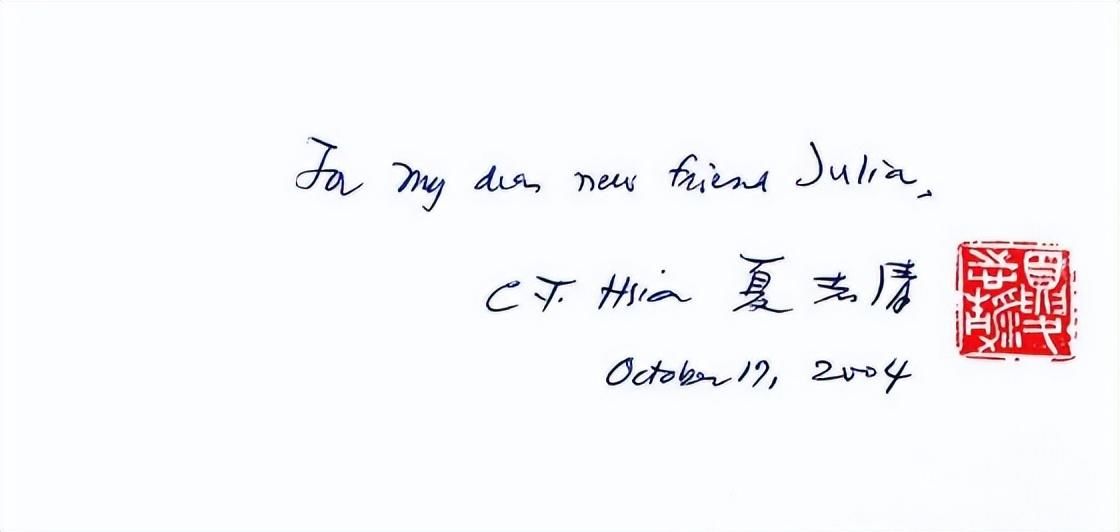 For my dear new friend Julia,
C. T. Hsia 夏志清
October 17, 2004